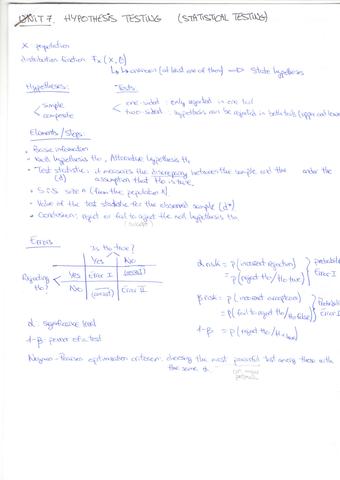 UNIT 7. HYPOTHESIS TESTING (STATISTICAL TESTING)
X population
distribution function: Fx (X, θ)
↳ unknown (at least one of them) ⇒ State hypothesis
Hypotheses: Tests:
simple
composite
one-sided: only rejected in one tail
two-sided: hypothesis can be rejected in both tails (upper and lower
Elements / Steps:
• Basic information
• Null hypothesis H₀, Alternative hypothesis H₁
• Test statistic: it measures the discrepancy between the sample and the under the
(d) assumption that H₀ is true.
• S.r.s size n (from the population X)
• Value of the test statistic for the observed sample (d*)
• Conclusion: reject or fail to reject the null hypothesis H₀
(accept)
Errors
Is H₀ true?
Yes No
Rejecting H₀?
Yes Error I (correct)
No (correct) Error II
α risk = p (incorrect rejection)
= p (reject H₀ / H₀ true)
probability Error I
β risk = p (incorrect acceptance)
= p (fail to reject H₀ / H₀ false)
Probability Error II
1-β = p (reject H₀ / H₀ true)
α: significance level
1-β: power of a test
Neyman-Pearson optimization criterion: choosing the most powerful test among those with
the same α.